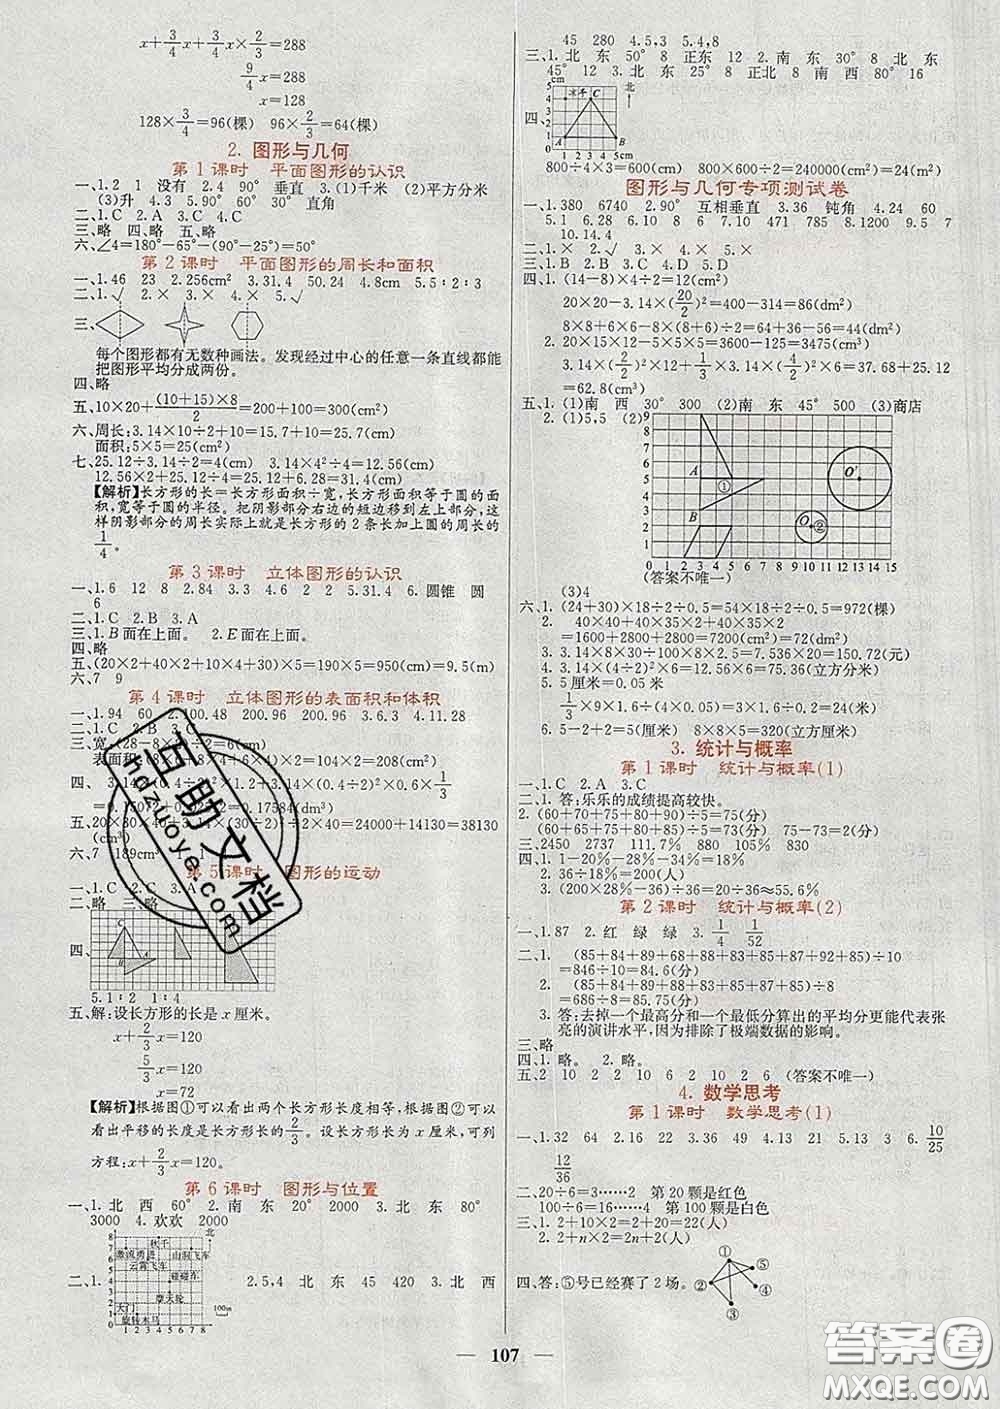 x+3/4x+3/4x×2/3=288
9/4x=288
x=128
128×3/4=96(棵) 96×2/3=64(棵)
2. 图形与几何
第1课时 平面图形的认识
一、1.2 1 没有 2.4 90° 垂直 3.(1)千米 (2)平方分米
(3)升 4.3 5.90° 60° 30° 直角
二、1.C 2.A 3.C 4.C
三、略 四、略 五、略
六、∠4=180°-65°-(90°-25°)=50°
第2课时 平面图形的周长和面积
一、1.46 23 2.256cm² 3.31.4 50.24 4.8cm 5.5∶2∶3
二、1.√ 2.× 3.× 4.× 5.√
三、
每个图形都有无数种画法。发现经过中心的任意一条直线都能
把图形平均分成两份。
四、略
五、10×20+(10+15)×8/2=200+100=300(cm²)
六、周长:3.14×10÷2+10=15.7+10=25.7(cm)
面积:5×5=25(cm²)
七、25.12÷3.14÷2=4(cm) 3.14×4²÷4=12.56(cm²)
12.56×2+25.12÷4=25.12+6.28=31.4(cm)
【解析】长方形的长=长方形面积÷宽,长方形面积等于圆的面
积,宽等于圆的半径。把阴影部分右边的短边移到左上部分,这
样阴影部分的周长实际上就是长方形的2条长加上圆的周长的
1/4。
第3课时 立体图形的认识
一、1.6 12 8 2.84 3.3 4.6 2 2 5.31.4 6.圆锥 圆
6
二、1.C 2.C 3.A 4.A
三、1.B面在上面。 2.E面在上面。
四、略
五、(20×2+40×2+10×4+30)×5=190×5=950(cm)=9.5(m)
六、7 9
第4课时 立体图形的表面积和体积
一、1.94 60 2.100.48 200.96 200.96 3.6.3 4.11.28
二、1.C 2.B 3.C
三、宽:(28-8×2)÷2=6(cm)
表面积:(8×8+8×6+8×6)×2=208(cm²)
第5课时 图形的运动
一、1.C 2.C 3.A
二、略 三、略
四、
5.1∶2 1∶4
五、解:设长方形的长是x厘米。
x+2/3x=120
5/3x=120
x=72
【解析】根据图①可以看出两个长方形长度相等,根据图②可以
看出平移的长度是长方形长的2/3。设长方形长为x厘米,可列
方程:x+2/3x=120。
第6课时 图形与位置
一、1.北 西 60° 2.南 东 20° 2000 3.北 东 80°
3000 4.欢欢 2000
二、1. 2.5,4 北 东 45 420 3.北 西
45 280 4.5,3 5.4,8
三、1.北 东 50° 8 正东 12 2.南 东 30° 8 北 东
45° 12 3.北 东 25° 8 正北 8 南 西 80° 16
四、
800÷4×3=600(cm) 800×600÷2=240000(cm²)=24(m²)
图形与几何专项测试卷
一、1.380 6740 2.90° 互相垂直 3.36 钝角 4.24 60
5.1 6.28 8 7.6 7.1 10 471 785 8.1200 9.5 7
10.14.4
二、1.× 2.√ 3.× 4.× 5.×
三、1.B 2.B 3.C 4.D 5.D
四、1.(14-8)×4÷2=12(cm²)
20×20-3.14×(20/2)²=400-314=86(dm²)
8×8+6×6-8×(8+6)÷2=64+36-56=44(dm²)
2. 20×15×12-5×5×5=3600-125=3475(cm³)
3.14×(2/2)²×12+1/3×3.14×(4/2)²×6=37.68+25.12
=62.8(cm³)
五、1.(1)南 西 30° 300 (2)南 东 45° 500 (3)商店
2. (1)5,5 (2)
(答案不唯一)
(3)4
六、1. (24+30)×18÷2÷0.5=54×9÷0.5=972(棵)
2. 40×40+40×35×2+40×40×2
=1600+2800+2800=7200(cm²)=72(dm²)
3. 3.14×8×30÷100×20=7.536×20=150.72(元)
4. 3.14×(4÷2)²×6=12.56×6=75.36(立方分米)
5. 5厘米=0.05米
1/3×9×1.6÷(4×0.05)=3×1.6÷0.2=24(米)
6. 5-2+2=5(厘米) 8×8×5=320(立方厘米)
3. 统计与概率
第1课时 统计与概率(1)
一、1.C 2.A 3.C
二、1. 答:乐乐的成绩提高较快。
2. (60+70+75+80+90)÷5=75(分)
(60+65+75+80+85)÷5=73(分) 75-73=2(分)
三、2450 2737 111.7% 880 105% 830
四、1. 1-20%-28%-34%=18%
2. 36÷18%=200(人)
3. (200×28%-36)÷36=20÷36≈55.6%
第2课时 统计与概率(2)
一、1.87 2.红 绿 绿 3.1/4 1/52
二、1. (85+84+89+68+88+83+85+87+92+85)÷10
=846÷10=84.6(分)
2. (85+84+89+88+83+85+87+85)÷8
=686÷8=85.75(分)
3. 答:去掉一个最高分和一个最低分算出的平均分更能代表张
亮的演讲水平,因为排除了极端数据的影响。
三、略
四、1.略。 2.略。
五、2 10 2 2 10 6 2 10 2 6 (答案不唯一)
4. 数学思考
第1课时 数学思考(1)
一、1.32 64 2.16 22 3.36 49 4.13 21 5.13 3 6.10/25
12/36
二、20÷6=3……2 第20颗是红色
100÷6=16……4 第100颗是白色
三、1. 2+10×2=2+20=22(人)
2. 2+n×2=2n+2(人)
四、答:⑤号已经赛了2场。
107
互助文档
hdzuoye.com
答案圈
MXQE.COM